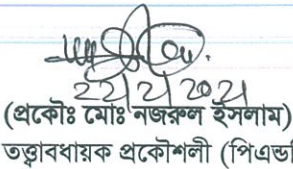 22/2/2021
(প্রকৌঃ মোঃ নজরুল ইসলাম)
তত্ত্বাবধায়ক প্রকৌশলী (পিএন্ডডি